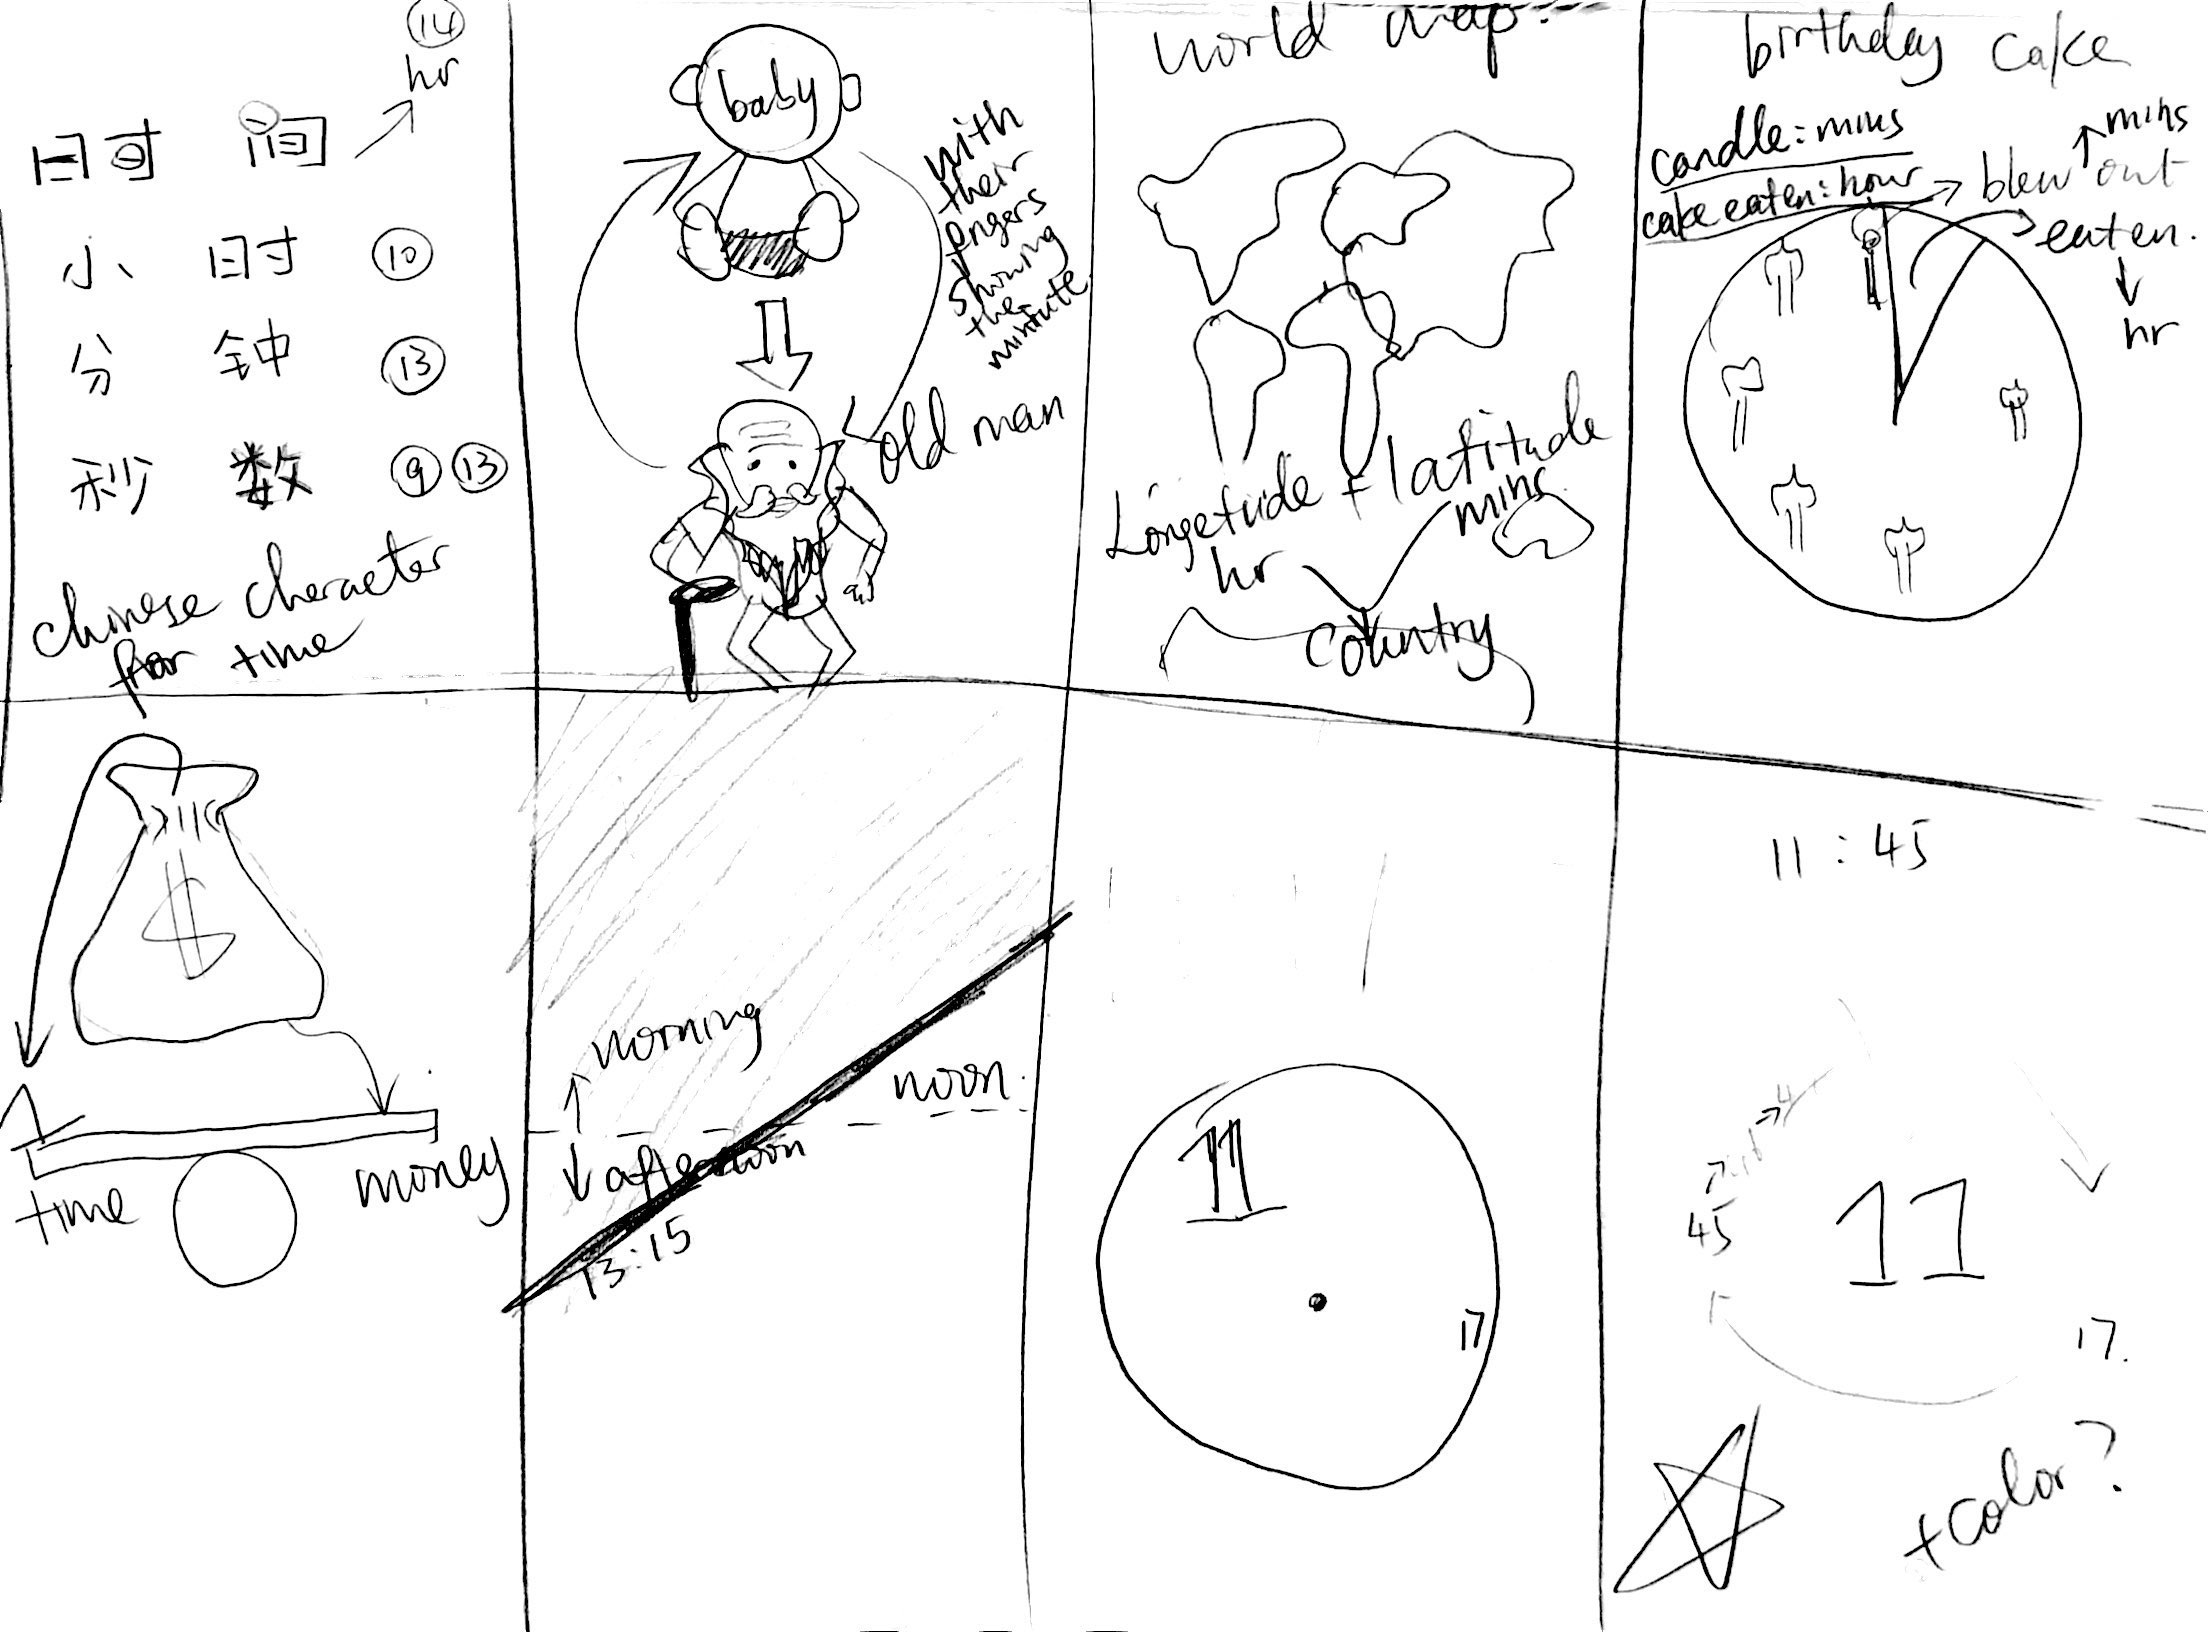 ⑭
hr
时 间
小 时 ⑩
分 钟 ⑬
秒 数 ⑨ ⑬
chinese cheracter
for time
baby
with
their
fingers
showing
the
mintute
old man
world map.
Longetude + latitude
hr mins
country
birthday cake
candle:mins
cake eaten:hour
mins
blew out
eaten.
hr
$
time money
morning
noon.
afternoon
13:15
11
17
11:45
45
11
17.
+color?